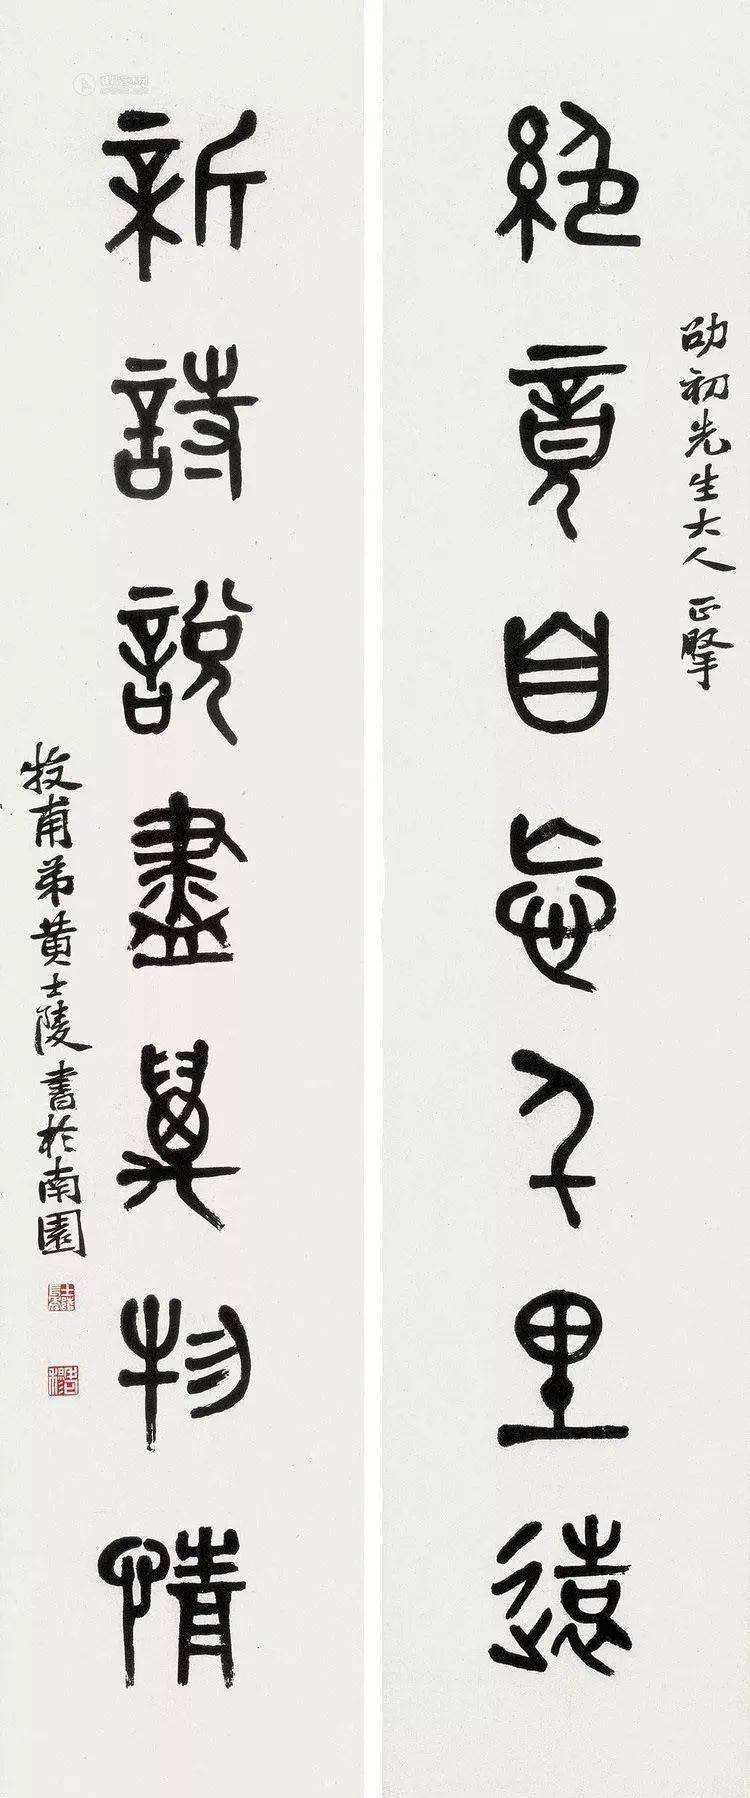 劭初先生大人正擘
絶竟自忘千里遠
新詩說盡萬物情
牧甫弟黄士陵書於南園